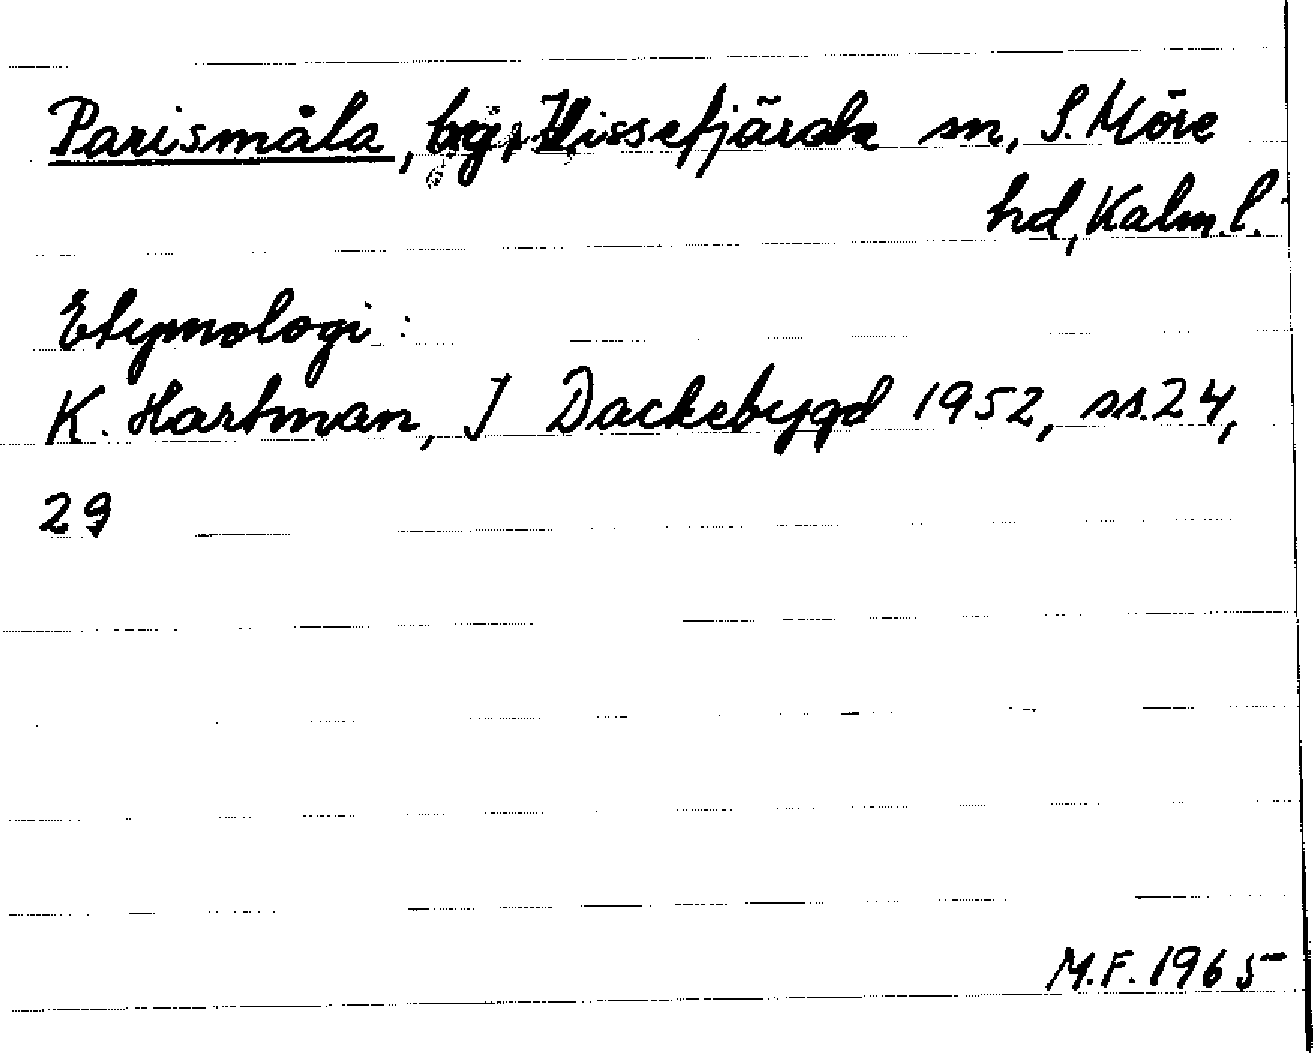 Parismåla, by, Vissefjärda sn, S. Möre
hd, Kalm. l.
Etymologi:
K. Hartman, I Dackebygd 1952, ss. 24,
29
M.F. 1965